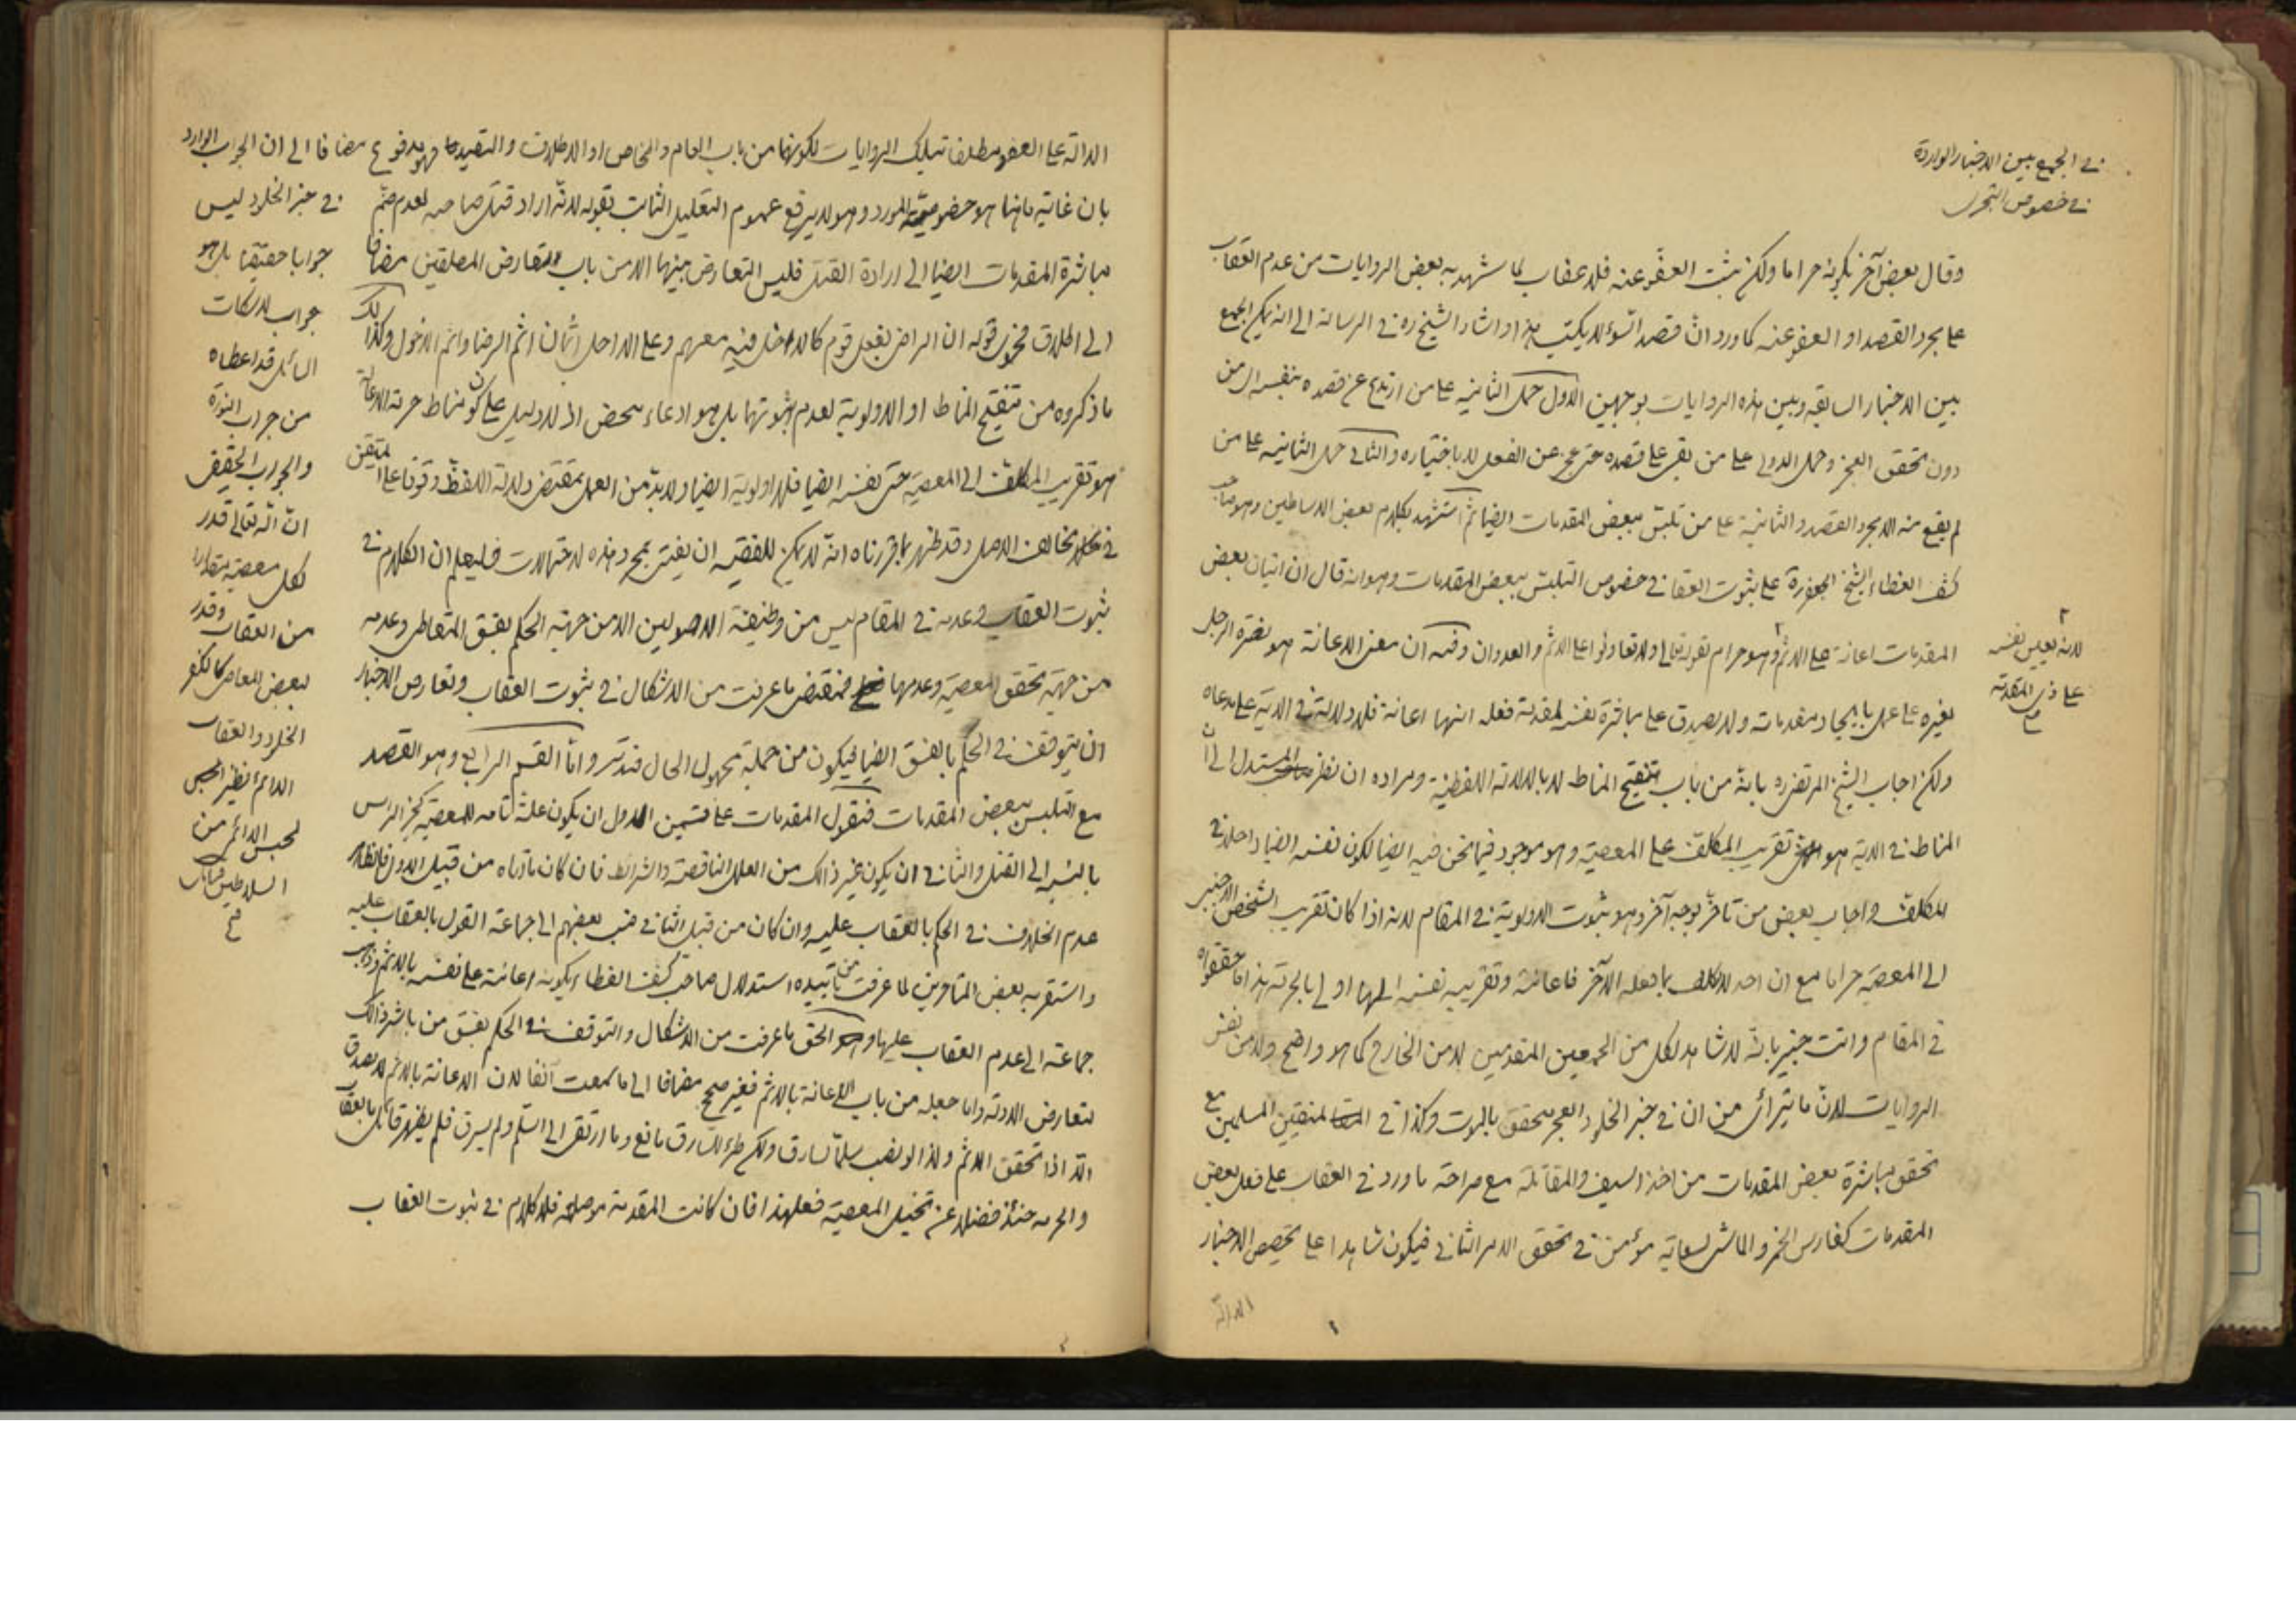 في الجمع بين الاخبار الواردة
في خصوص التجري
وقال بعض آخر بكونه حراما ولكن ثبت العفو عنه فلا عقاب لما شهد به بعض الروايات من عدم العقاب
على مجرد القصد او العفو عنه كما ورد ان قصد السوء لا يكتب هذا واشار الشيخ ره في الرسالة الى انه يمكن الجمع
بين الاخبار السابقه وبين هذه الروايات بوجهين الاول حمل الثانيه على من ارتدع عن قصده بنفسه اى من
دون تحقق العجز وحمل الاولى على من بقى على قصده حتى عجز عن الفعل لا باختياره والثاني حمل الثانيه على من
لم يقع منه الا مجرد القصد والثانية على من تلبس ببعض المقدمات ايضا ثم استشهد بكلام بعض الاساطين وهو صاحب
كشف الغطاء الشيخ الجعفر ره على ثبوت العقاب في خصوص التلبس ببعض المقدمات وهو انه قال ان اتيان بعض
المقدمات اعانة على الاثم وهو حرام بقوله تعالى ولا تعاونوا على الاثم والعدوان وفيه ان معنى الاعانة هو نصرة الرجل
لانه يعين نفسه
على ذى المقدمة
م
بغيره على عمل بايجاد مقدماته ولا يصدق على مباشرة نفسه لمقدمة فعله انها اعانة فلا دلالة في الاية على مدعاه
ولكن اجاب الشيخ المرتضى ره بانه من باب تنقيح المناط لا بالدلالة اللفظية ومراده ان نظر المستدل الى ان
المناط في الاية هو تقريب المكلف على المعصية وهو موجود فيما نحن فيه ايضا لكون نفسه ايضا داخلا في
المكلف واجاب بعض من تاخر بوجه آخر وهو ثبوت الاولوية في المقام لانه اذا كان تقريب الشخص الاجنبى
الى المعصية حراما مع ان احد لا يكلف بما فعله الآخر فاعانته وتقريبه نفسه اليها اولى بالحرمة هذا ما حققوه
في المقام وانت خبير بانه لا شاهد لكل من الجمعين المتقدمين لا من الخارج كما هو واضح ولا من نفس
الروايات لان ما يترائى من ان في خبر الخلود العجز متحقق بالموت وكذا في المتفقين المسلمين مع
تحقق مباشرة بعض المقدمات من اخذ السيف والمقاتلة مع صراحة ما ورد في العقاب على فعل بعض
المقدمات كغارس الخمر والماشى لسعاية مؤمن في تحقق الامر الثاني فيكون شاهدا على تخصيص الاخبار
الدالة
الدالة على العفو مطلقا بتلك الروايات لكونها من باب العام والخاص او الاطلاق والتقييد فهو مدفوع
بان غاية ما فيها هو خصوصية المورد وهو لا يرفع عموم التعليل الثابت بقوله لانه اراد قتل صاحبه لعدم ضم
مباشرة المقدمات ايضا الى ارادة القتل فليس التعارض بينهما الا من باب تعارض المطلقين مضافا
الى اطلاق نحو قوله ان الراضى بفعل قوم كالداخل فيه معهم وعلى الداخل اثمان اثم الرضا واثم الدخول وكذلك
ما ذكروه من تنقيح المناط او الاولوية لعدم ثبوتها بل هو ادعاء محض اذ لا دليل على كون مناط حرمة الاعانة
هو تقريب المكلف الى المعصية حتى نفسه ايضا فلا اولوية ايضا ولا بد من العمل بمقتضى دلالة اللفظ وقوفا على المتيقن
في مخالف الاصل وقد ظهر بما قررناه انه لا يمكن للفقيه ان يفتى بمجرد هذه الاحتمالات فليعلم ان الكلام في
ثبوت العقاب وعدمه في المقام ليس من وظيفة الاصوليين الا من جهة الحكم بفسق المتعاطى وعدمه
من جهة تحقق المعصية وعدمها فمقتضى ما عرفت من الاشكال في ثبوت العقاب وتعارض الاخبار
ان يتوقف في الحكم بالفسق ايضا فيكون من جملة مجهول الحال فتدبر واما القسم الرابع وهو القصد
مع التلبس ببعض المقدمات فنقول المقدمات على قسمين الاول ان يكون علة تامة للمعصية كجز الراس
بالنسبة الى القتل والثاني ان يكون غير ذلك من العلل الناقصة والشرائط فان كان ما اتاه من قبيل الاول فالظاهر
عدم الخلاف في الحكم بالعقاب عليه وان كان من قبيل الثاني فنسب بعضهم الى جماعة القول بالعقاب عليه
واستقر به بعض المتاخرين لما عرفت من تأييده استدلال صاحب كشف الغطاء بكونه اعانة على نفسه بالاثم وذهب
جماعة الى عدم العقاب عليها والحق ما عرفت من الاشكال والتوقف في الحكم بفسق من باشر ذلك
لتعارض الادلة واما جعله من باب الاعانة بالاثم فغير صحيح مضافا الى ما سمعت آنفا لان الاعانة بالاثم لا يصدق
الا اذا تحقق الاثم ولذا لو نصب سلما لسارق ولكن طرء للسارق مانع وما ارتقى الى السلم ولم يسرق فلم يظهر قائل بالعقاب
والحرمة حينئذ فضلا عن تخيل المعصية فعلى هذا فان كانت المقدمة موصلة فلا كلام في ثبوت العقاب
مضافا الى ان الجواب الوارد
في خبر الخلود ليس
جوابا حقيقيا بل هو
جواب لاسكات
السائل قد اعطاه
من جراب النورة
والجواب الحقيقى
ان الله تعالى قدر
لكل معصية مقدارا
من العقاب وقدر
لبعض المعاصى كالكفر
الخلود والعقاب
الدائم نظير الحبس
لحبس الدائم من
السلاطين
م